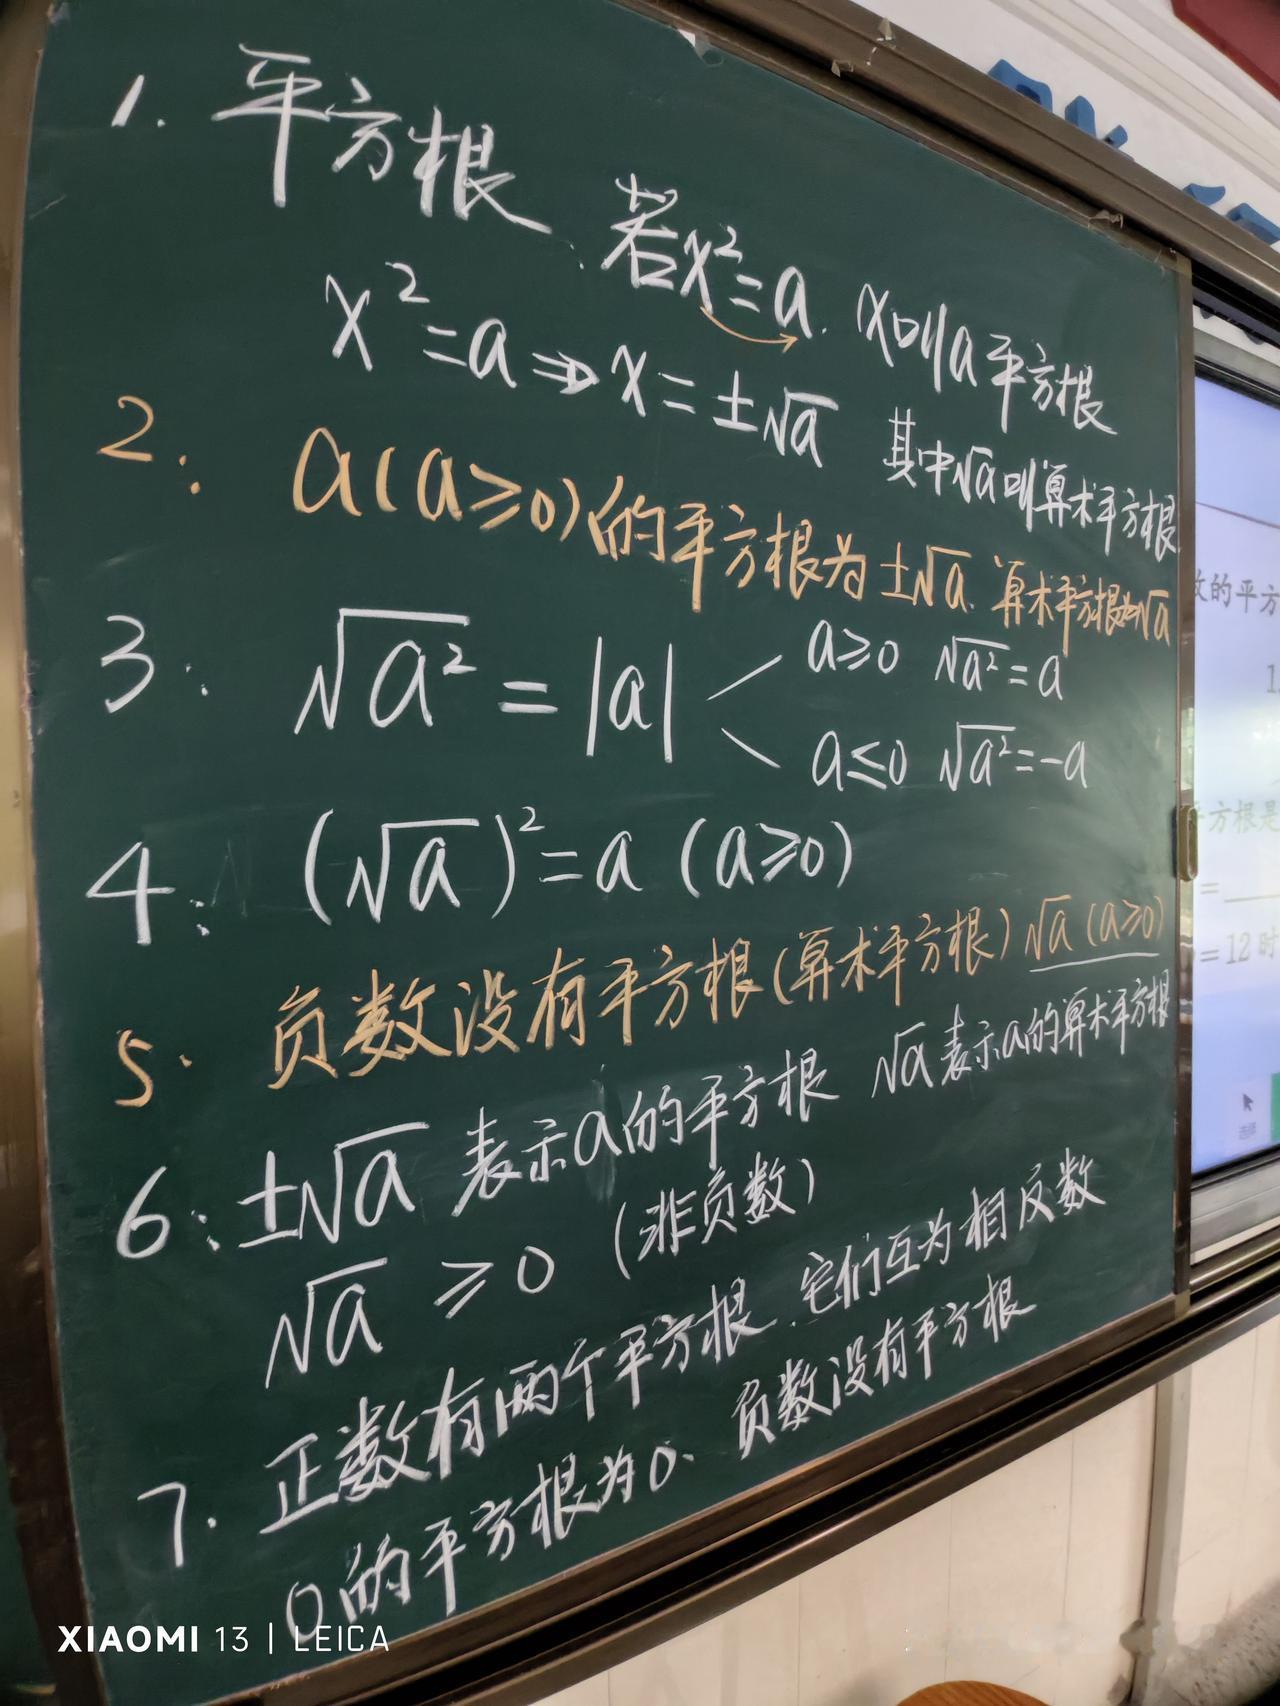 1. 平方根、若x²=a. x叫a平方根
x²=a⇒x=±√a 其中√a叫算术平方根
2. a(a≥0)的平方根为±√a. 算术平方根为√a
3. √a²=|a| a≥0 √a²=a
a≤0 √a²=-a
4. (√a)²=a (a≥0)
5. 负数没有平方根(算术平方根)√a(a≥0)
6. ±√a 表示a的平方根 √a表示a的算术平方根
√a ≥0 (非负数)
7. 正数有两个平方根.它们互为相反数
0的平方根为0. 负数没有平方根
的平方
1
方根是
=
=12时
选择
XIAOMI 13 | LEICA